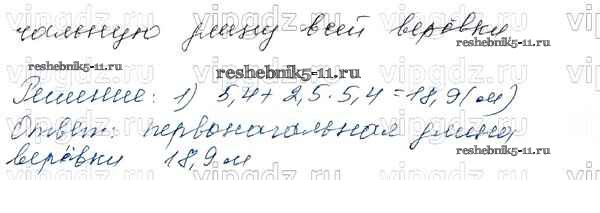 чальную длину всей верёвки
reshebnik5-11.ru
reshebnik5-11.ru
Решение: 1) 5,4 + 2,5 · 5,4 = 18,9 (м)
Ответ: первоначальная длина
reshebnik5-11.ru
верёвки 18,9 м
vipgdz.ru vipgdz.ru vipgdz.ru vipgdz.ru